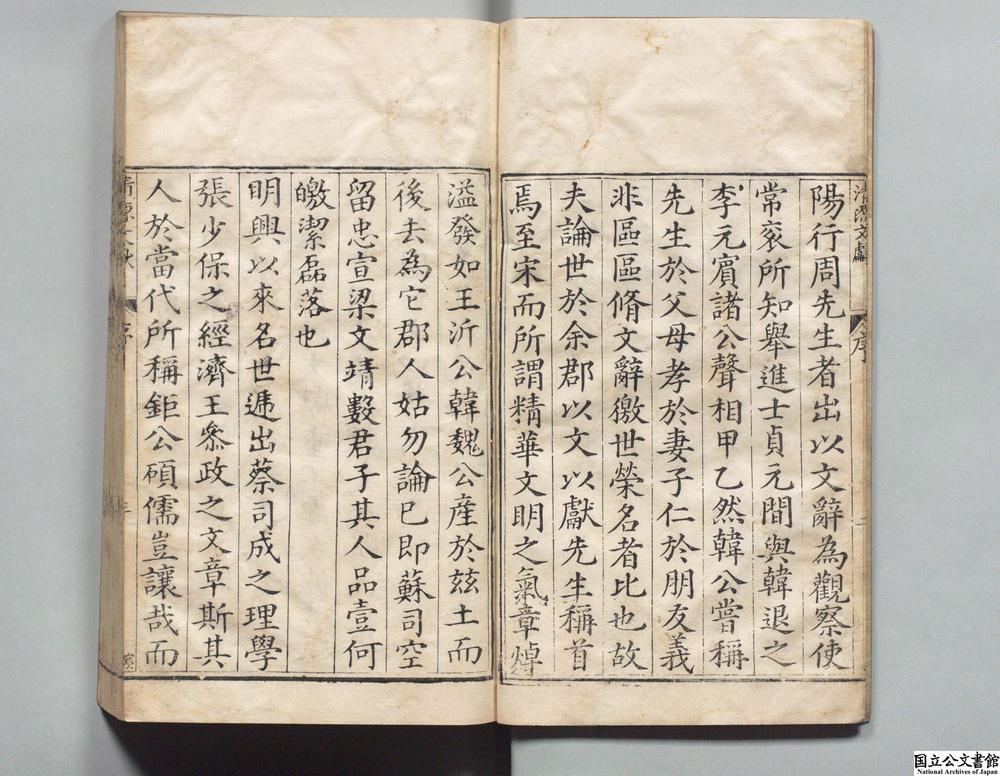 陽行周先生者出以文辭為觀察使
常衮所知舉進士貞元間與韓退之
李元賓諸公聲相甲乙然韓公嘗稱
先生於父母孝於妻子仁於朋友義
非區區脩文辭徼世榮名者比也故
夫論世於余郡以文以獻先生稱首
焉至宋而所謂精華文明之氣章焯
溢發如王沂公韓魏公産於兹土而
後去為它郡人姑勿論已即蘇司空
留忠宣梁文靖數君子其人品壹何
皦潔磊落也
明興以來名世遞出蔡司成之理學
張少保之經濟王叅政之文章斯其
人於當代所稱鉅公碩儒豈讓哉而
国立公文書館
National Archives of Japan